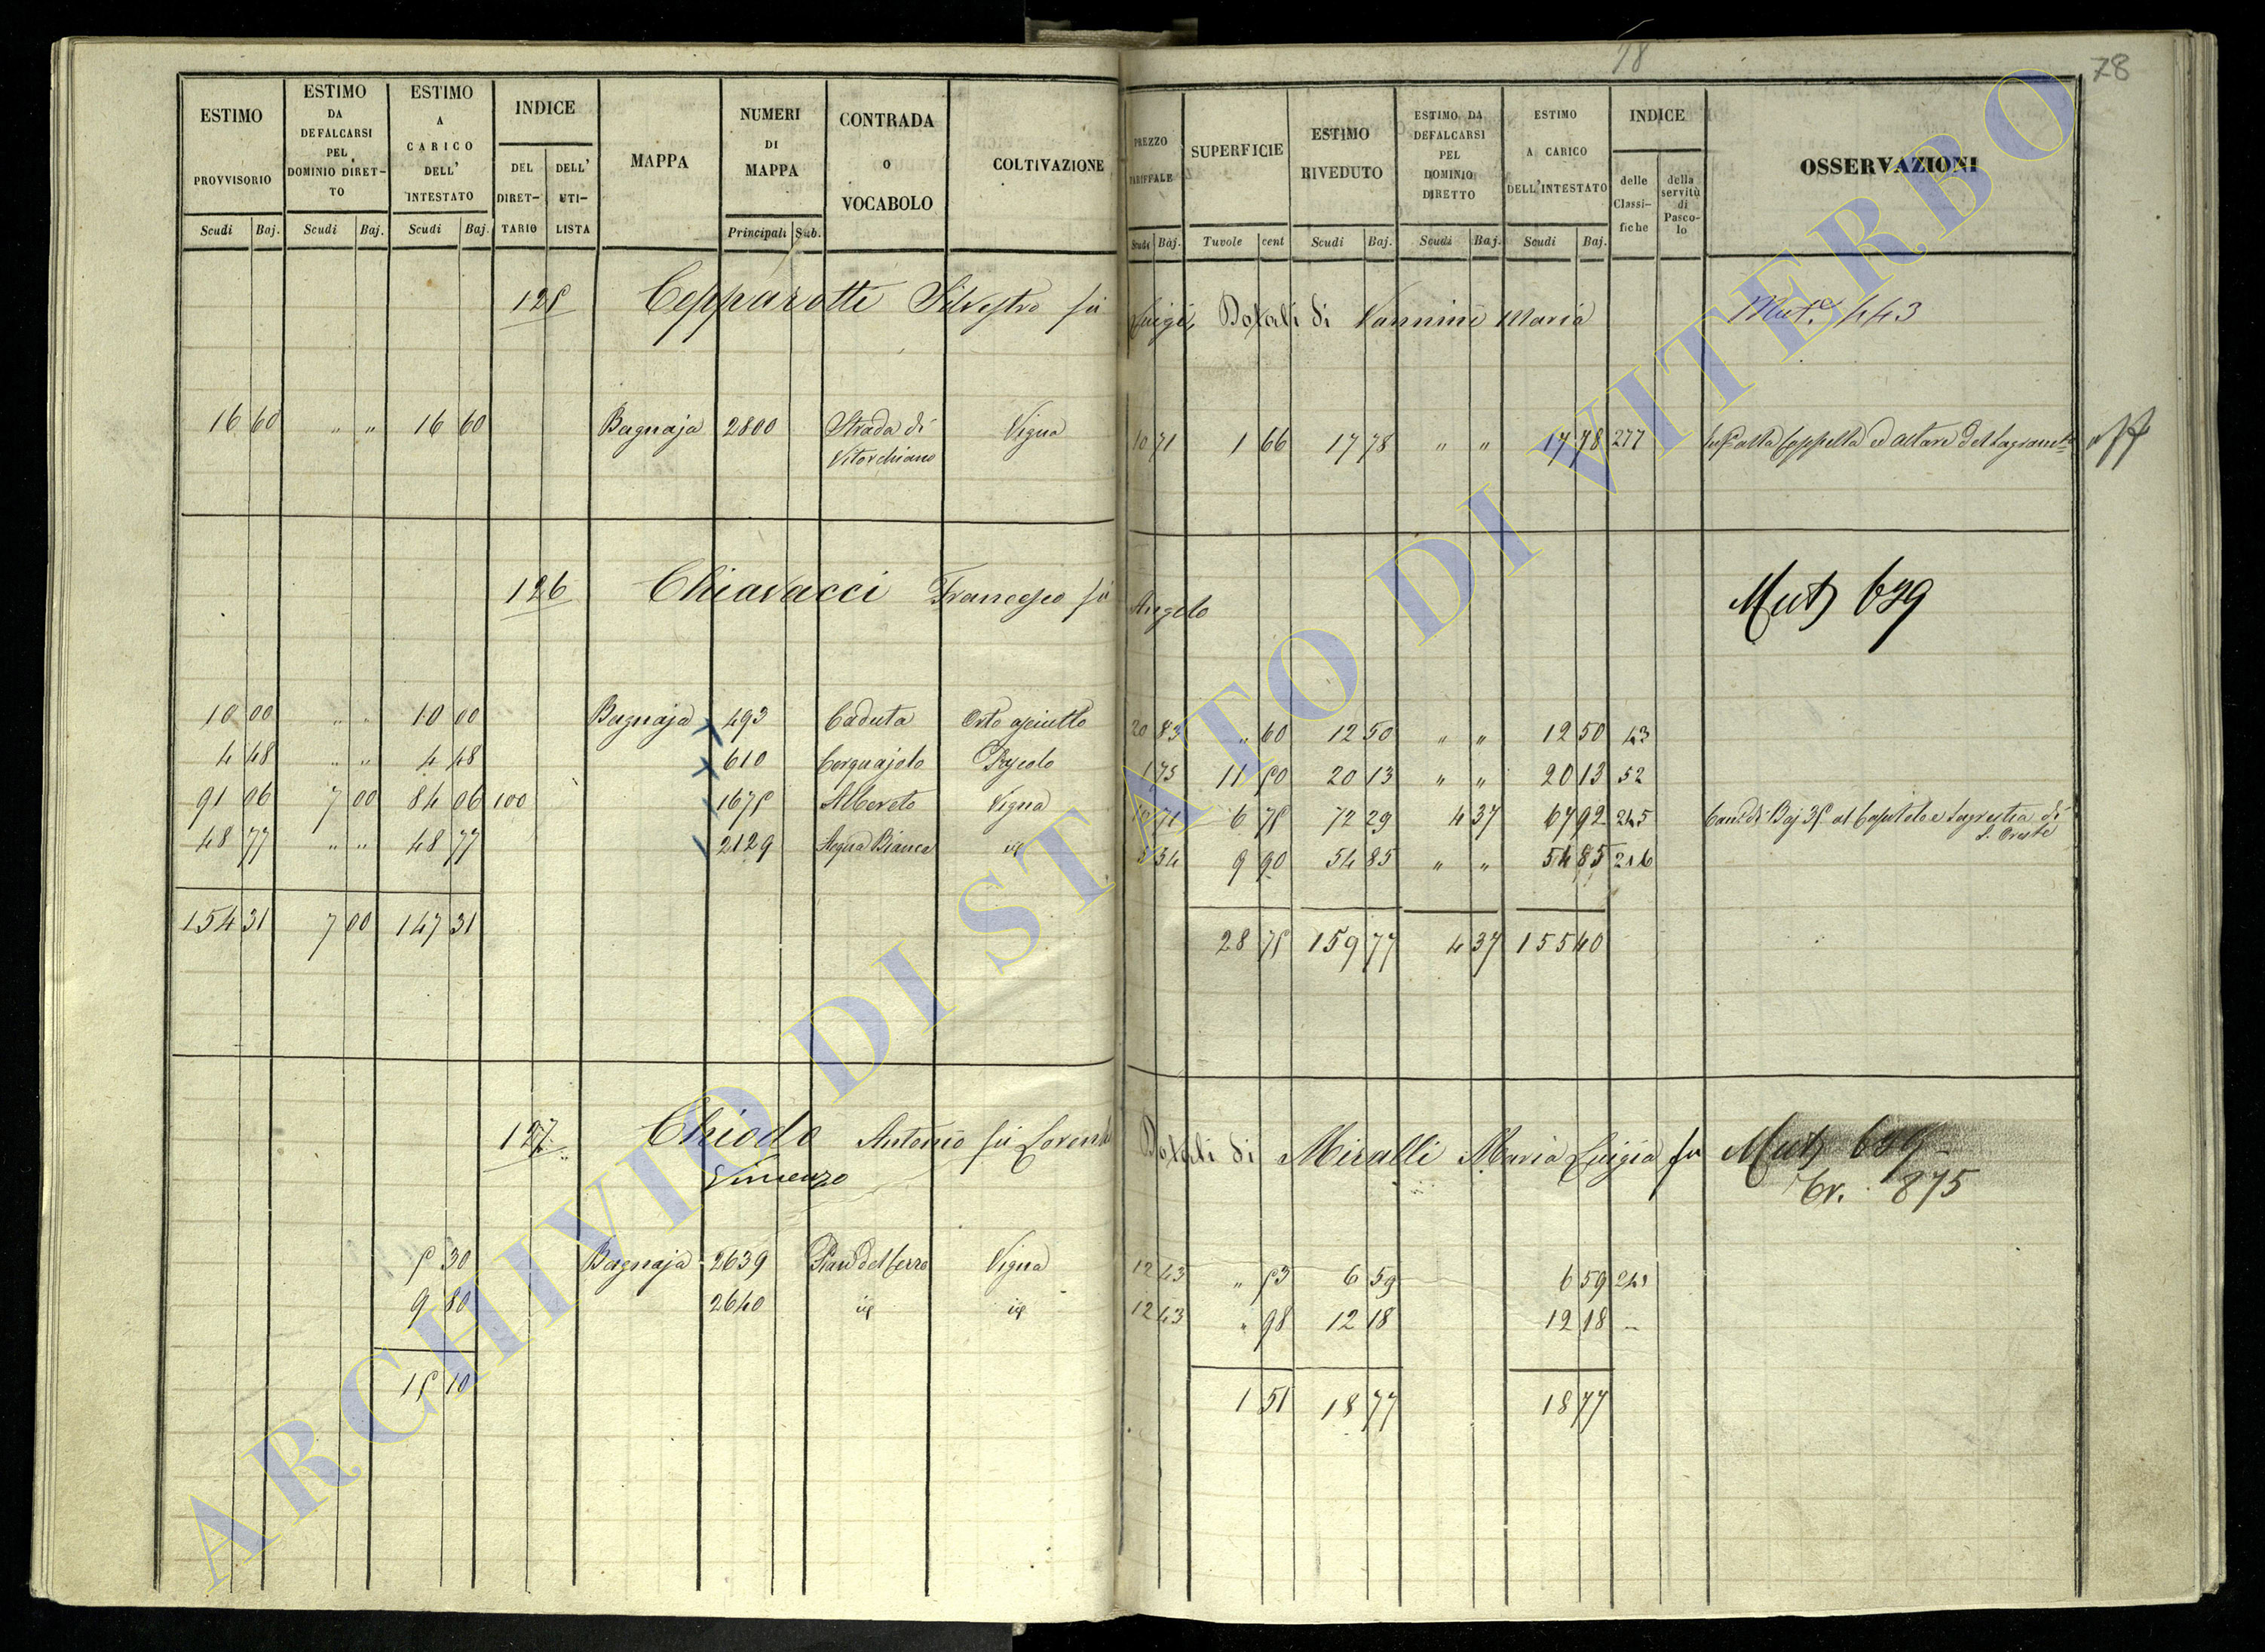 78
78
ESTIMO PROVVISORIO
ESTIMO DA DEFALCARSI PEL DOMINIO DIRETTO
ESTIMO A CARICO DELL' INTESTATO
INDICE
DEL DIRETTARIO
DELL' UTILISTA
MAPPA
NUMERI DI MAPPA
CONTRADA o VOCABOLO
COLTIVAZIONE
PREZZO TARIFFALE
SUPERFICIE
ESTIMO RIVEDUTO
ESTIMO DA DEFALCARSI PEL DOMINIO DIRETTO
ESTIMO A CARICO DELL'INTESTATO
INDICE
delle Classifiche
della servitù di Pascolo
OSSERVAZIONI
Scudi Baj. Scudi Baj. Scudi Baj. Principali Sub. Scudi Baj. Tavole cent Scudi Baj. Scudi Baj. Scudi Baj.
125 Cepparotti Silvestro fu Luigi, Dotali di Vannini Maria Mut.e 443
16 60 " " 16 60 Bagnaja 2800 Strada di Vitorchiano Vigna 10 71 1 66 17 78 " " 17 78 277 alla Cappella ed altare del
126 Chiavacci Francesco fu Angelo Mut 629
10 00 " " 10 00 Bagnaja 493 Caduta Orto asciutto 20 83 " 60 12 50 " " 12 50 43
4 48 " " 4 48 610 Corguajolo Pascolo 1 75 11 50 20 13 " " 20 13 52
91 06 7 00 84 06 100 1675 Albereto Vigna 10 71 6 75 72 29 4 37 67 92 245 di Baj 35 al Capitolo e Sagrestia di S. Oreste
48 77 " " 48 77 2129 Acqua Bianca id 5 54 9 90 54 85 " " 54 85 246
154 31 7 00 147 31 28 75 159 77 4 37 155 40
127 Chiodo Antonio fu Lorenzo Dotali di Miralli Maria Luigia fu Vincenzo Mut 629
Cr. 875
5 30 Bagnaja 2639 Pian del Cerro Vigna 12 43 " 53 6 59 6 59 241
9 80 2640 id id 12 43 " 98 12 18 12 18 "
15 10 1 51 18 77 18 77
ARCHIVIO DI STATO DI VITERBO